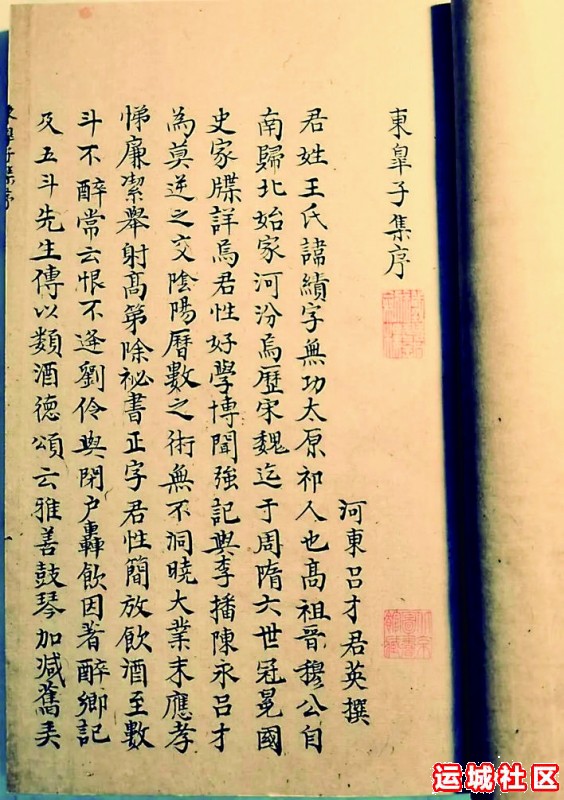 東臯子集序
河東吕才君英撰
君姓王氏諱績字無功太原祁人也髙祖晉穆公自
南歸北始家河汾焉歴宋魏迄于周隋六世冠冕國
史家牒詳焉君性好學博聞強記與李播陳永吕才
為莫逆之交陰陽曆數之術無不洞曉大業末應孝
悌廉潔舉射髙第除祕書正字君性簡放飲酒至數
斗不醉常云恨不逢劉伶與閉户轟飲因著醉鄉記
及五斗先生傳以類酒德頌云雅善鼓琴加減舊弄
运城社区